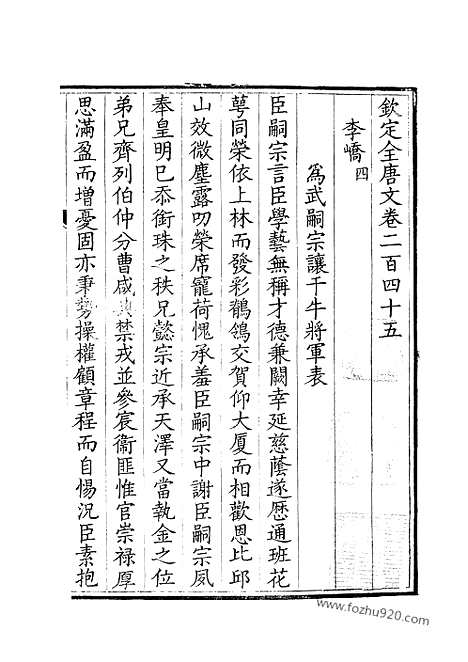 欽定全唐文卷二百四十五
李嶠 四
爲武嗣宗讓千牛將軍表
臣嗣宗言臣學藝無稱才德兼闕幸延慈蔭遂歴通班花
萼同榮依上林而發彩鶺鴒交賀仰大厦而相歡恩比邱
山效微塵露叨榮席寵荷愧承羞臣嗣宗中謝臣嗣宗夙
奉皇明已忝銜珠之秩兄懿宗近承天澤又當執金之位
弟兄齊列伯仲分曹咸禁戎並參宸衞匪惟官崇祿厚
思滿盈而增憂固亦秉勢操權顧章程而自惕況臣素抱
www.fozhu920.com